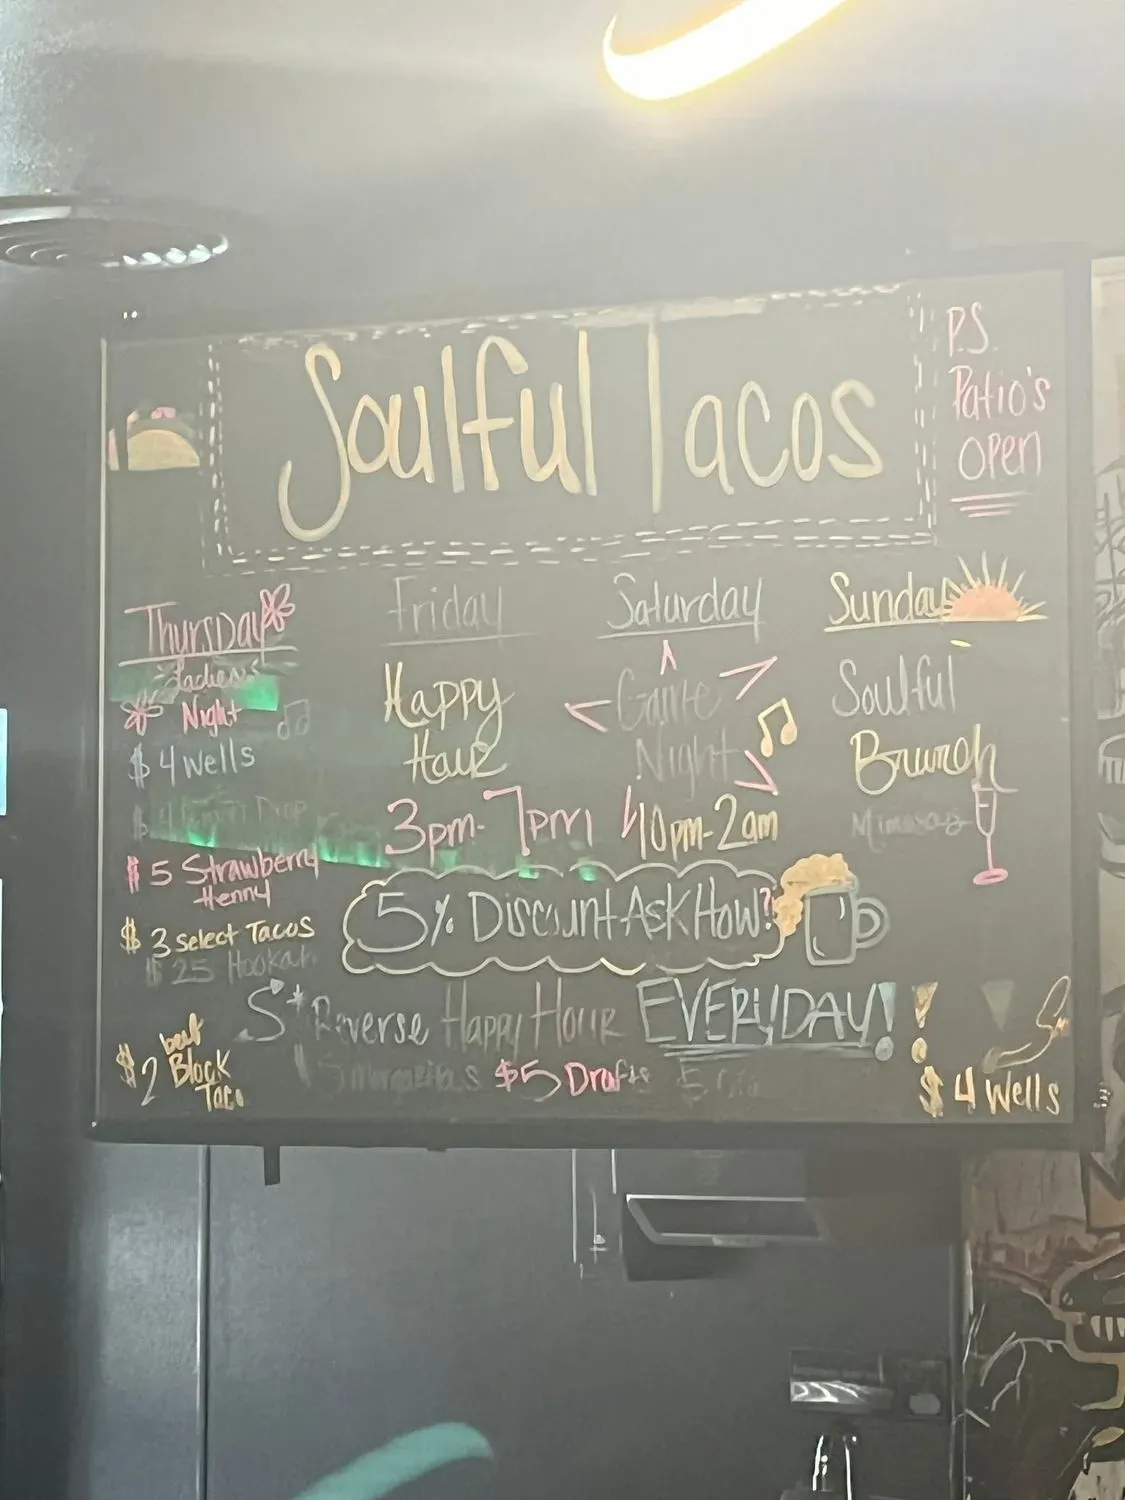 Soulful Tacos
P.S.
Patio's
open
Thursday
Ladies
Night
$4 Wells
$4 Drop
$5 Strawberry
Henny
$3 select Tacos
$25 Hookah
Friday
Happy
Hour
3pm-7pm
Saturday
Game
Night
10pm-2am
Sunday
Soulful
Brunch
Mimosas
5% Discount Ask How?
Reverse Happy Hour EVERYDAY!!
$2 beef
Block
Taco
5 Margaritas $5 Drafts
$4 Wells